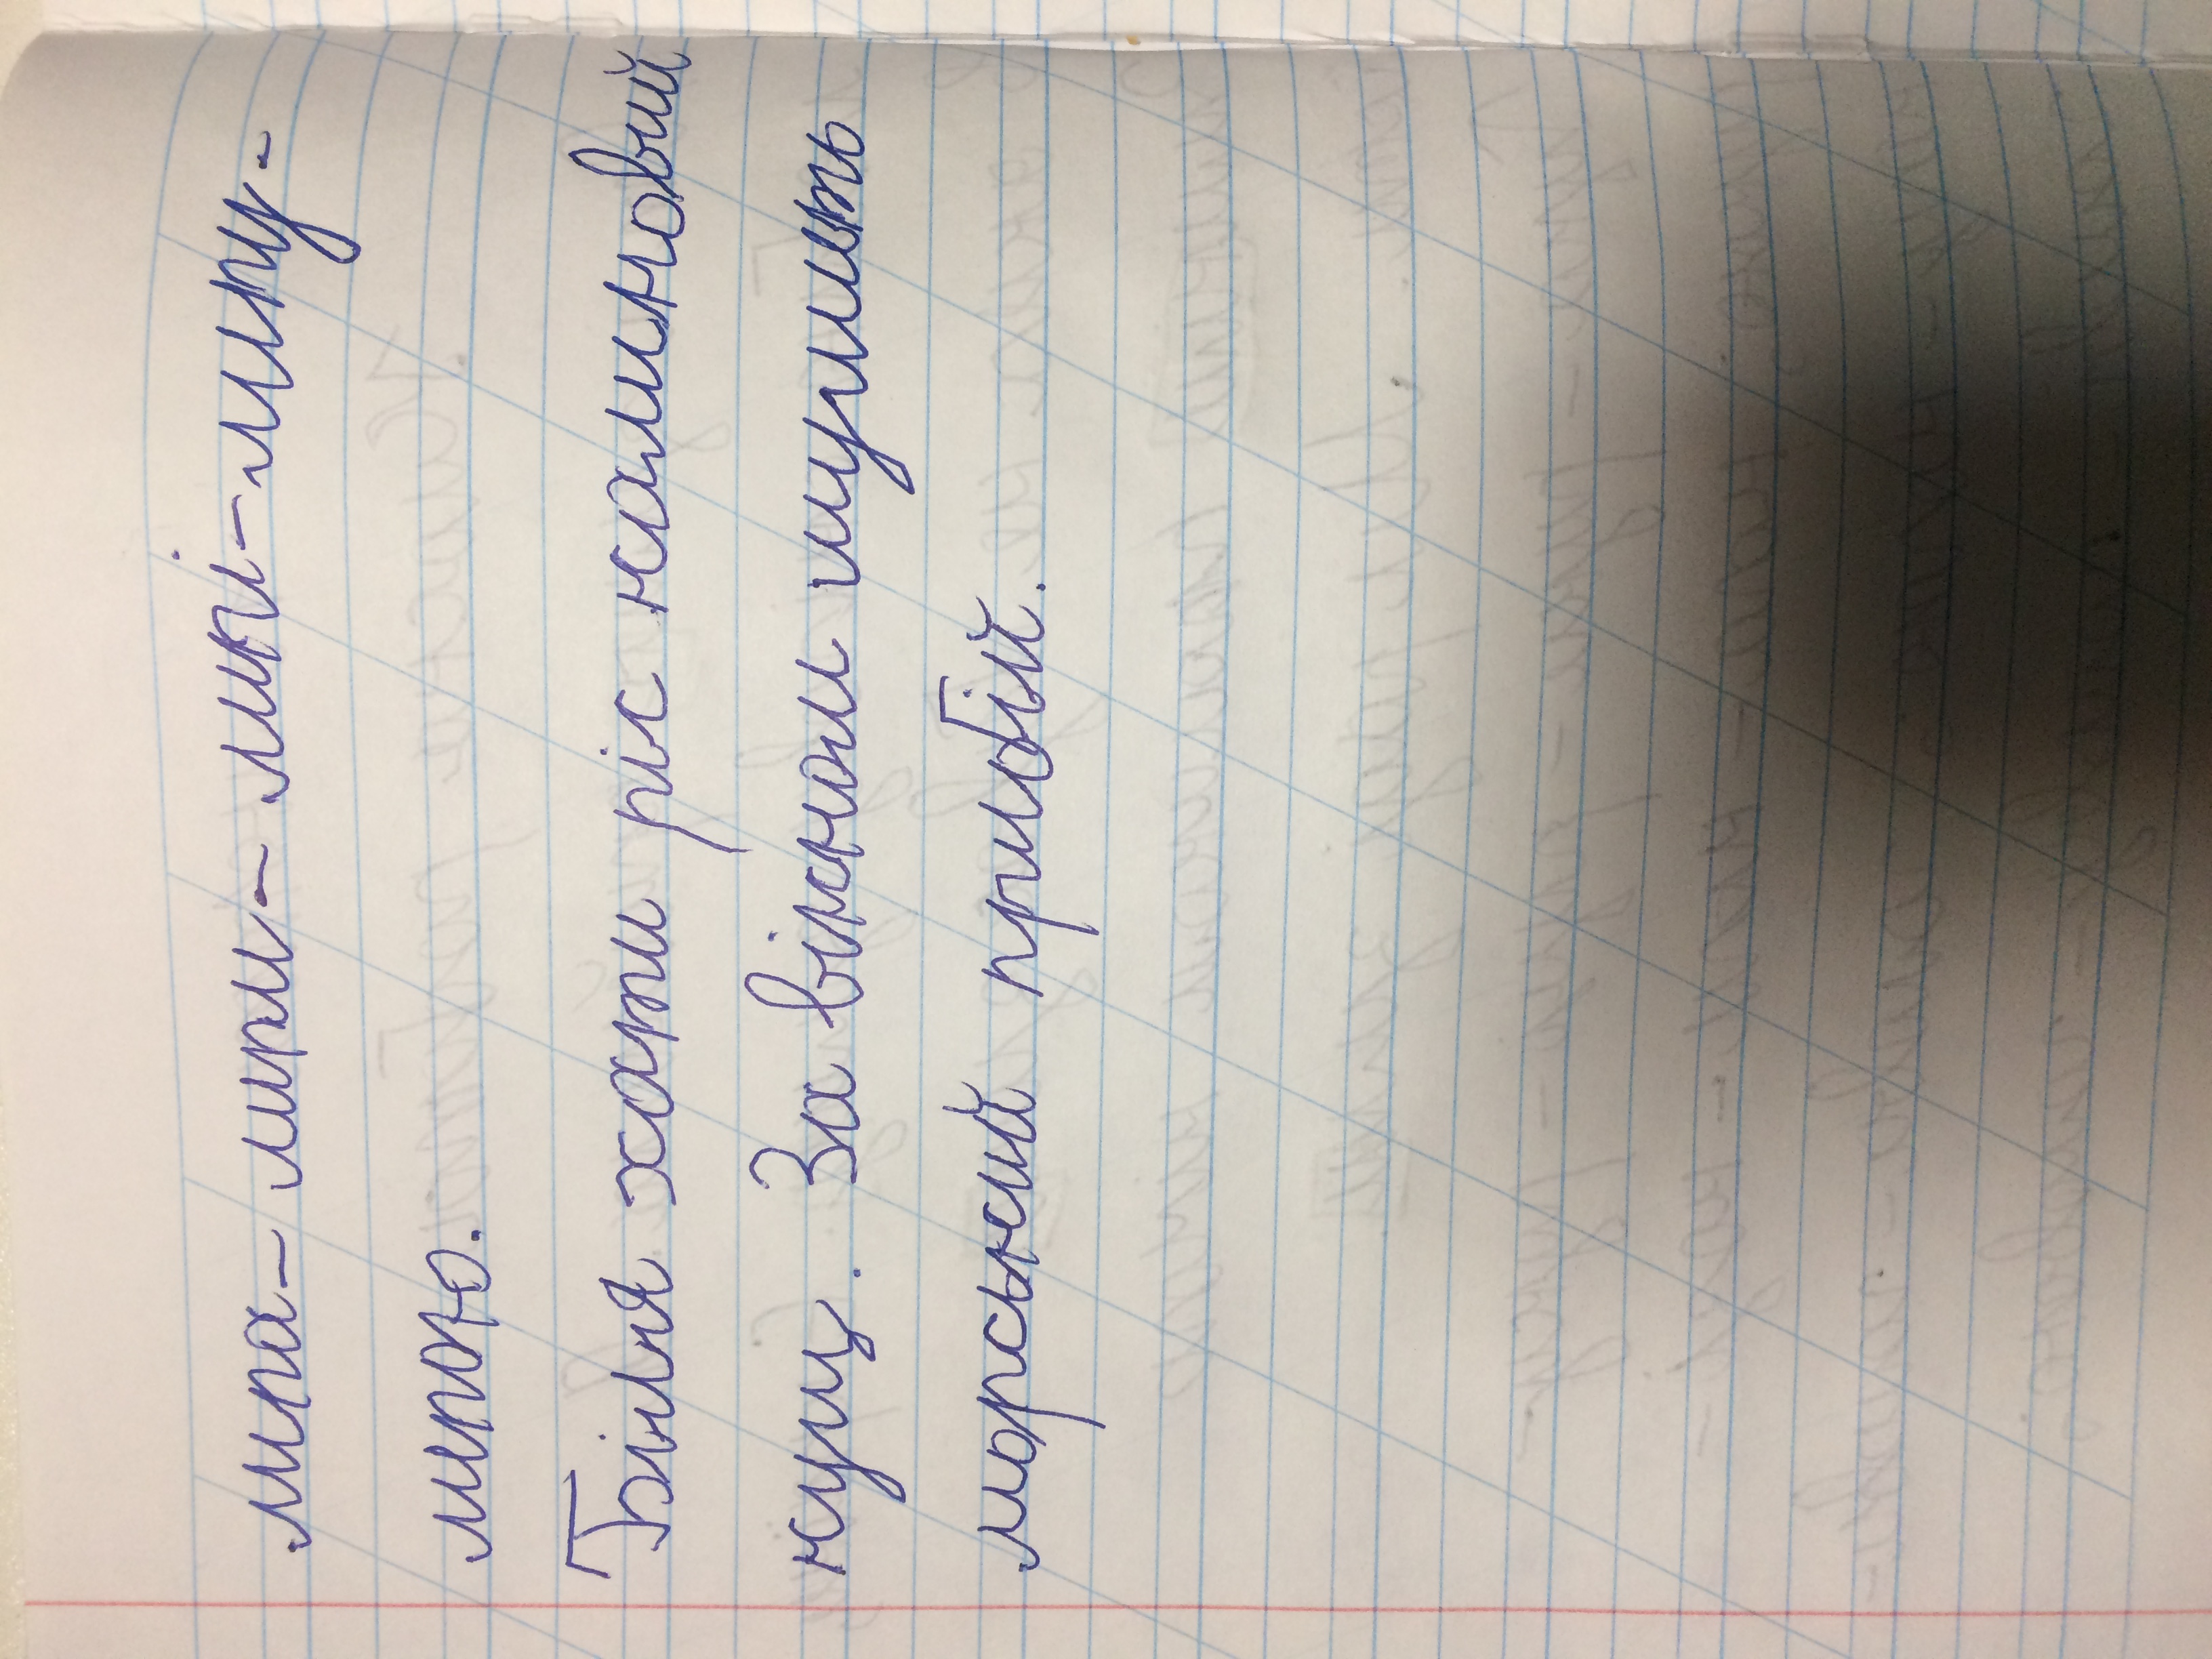 мпа- мпи- мпі-мпу-
мпою.
Біля хати ріс калиновий
кущ. За вікном шумить
морський прибій.